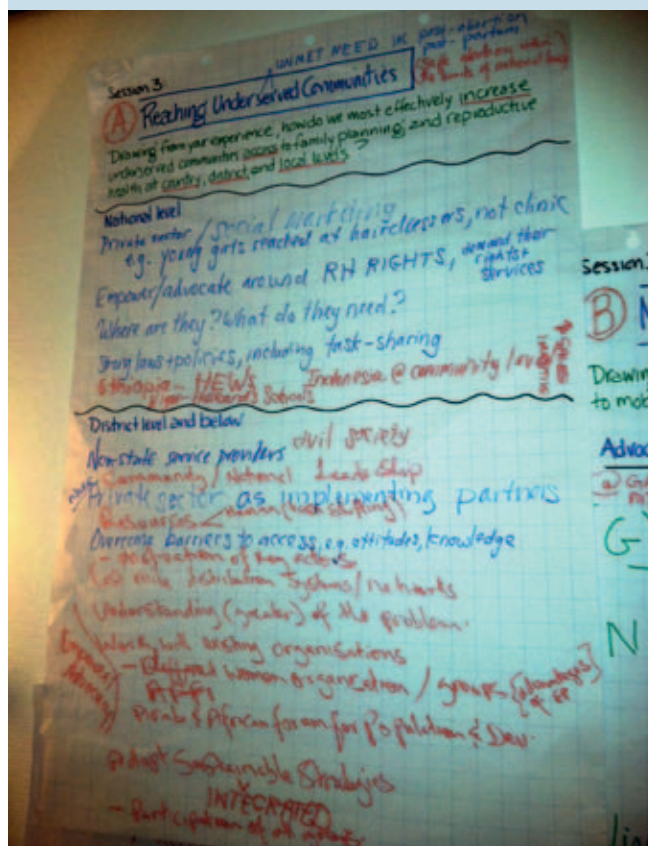 UNMET NEED in post-abortion
post-partum
(Safe abortion within
the limits of national laws)
Session 3
A Reaching Underserved Communities
Drawing from your experience, how do we most effectively increase
underserved communities access to family planning and reproductive
health at country, district, and local levels?
National level
Private sector / social marketing
e.g. young girls reached at hairdressers, not clinic
Empower/advocate around RH RIGHTS, demand their
rights+
services
Where are they? What do they need?
Strong laws+policies, including task-sharing
Ethiopia - HEWs Indonesia @ community level
Niger - Husband's Schools
District level and below
Non-state service providers civil society
Community / National Leadership
Private sector as implementing partners
Resources human (task shifting)
Overcome barriers to access, e.g. attitudes, knowledge
of key actors
systems/networks
Understanding (greater) of the problem.
Work with existing organisations
- Different women organisation / groups [advantages
of FP]
Arab & African forum for Population & Dev.
Sustainable Strategies
INTEGRATED
- Participation of all
Session
B
Drawin
to mob
Advoc
G
N